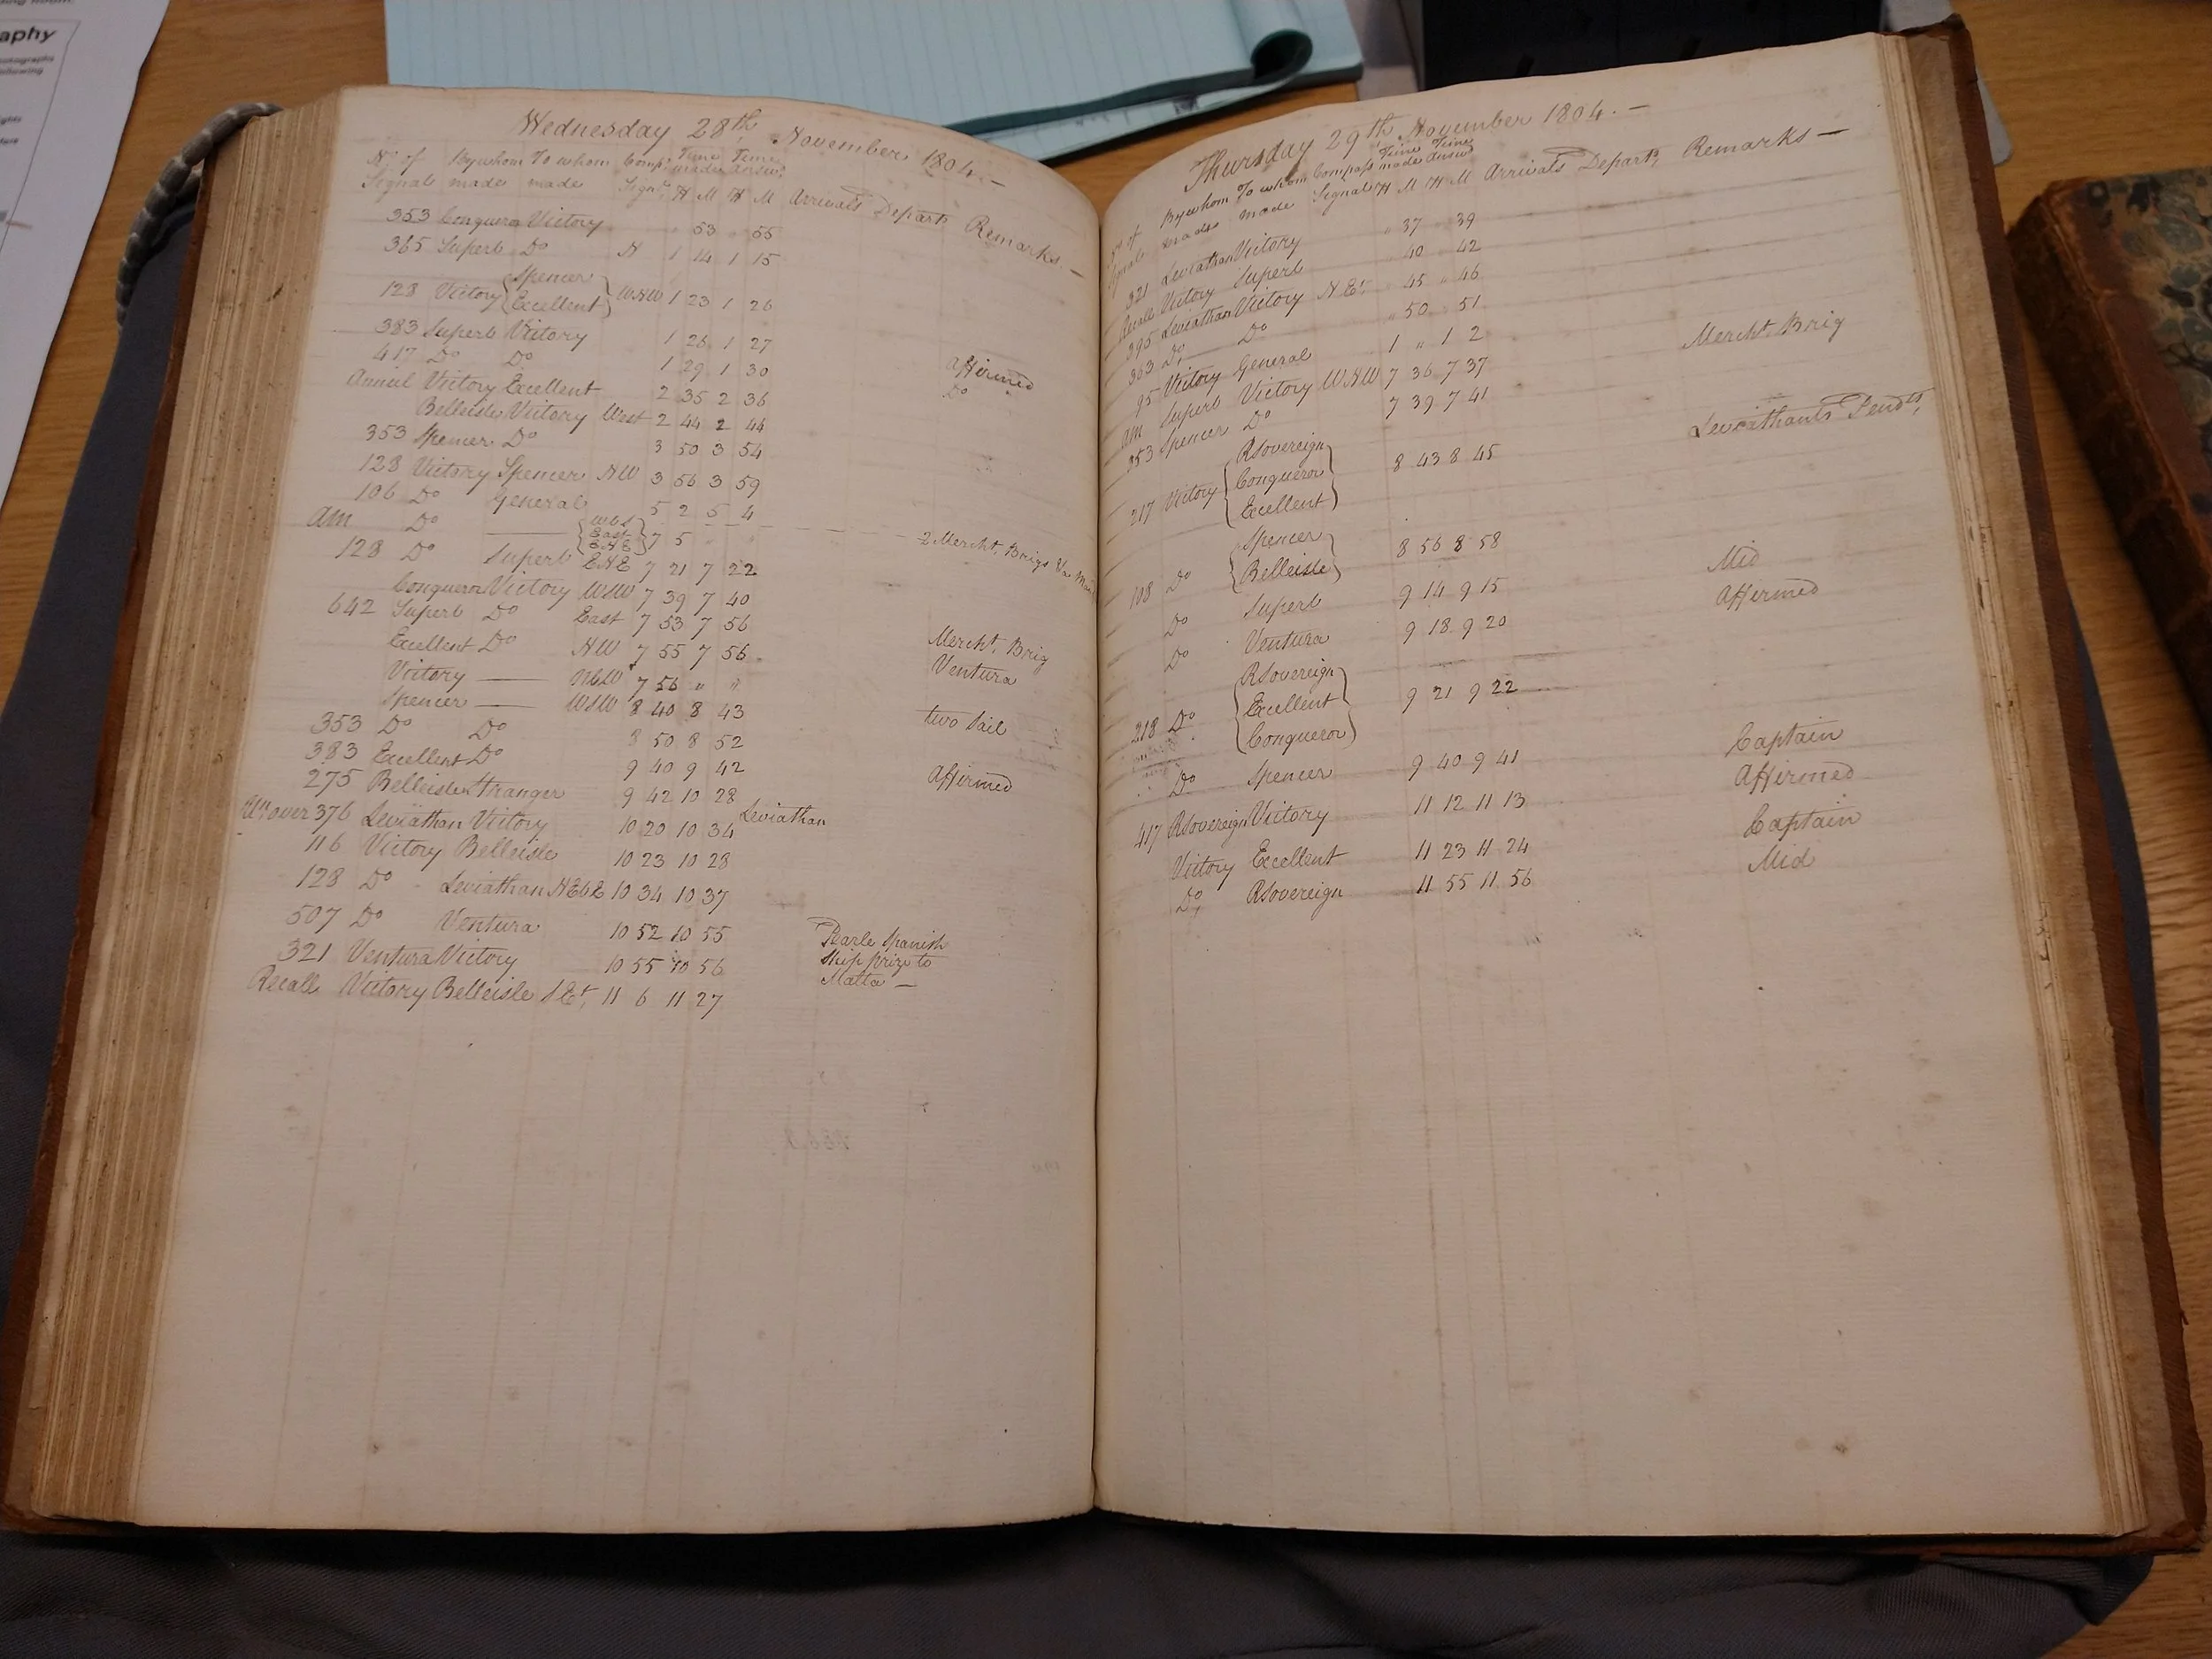 aphy
otographs
following
Wednesday 28th November 1804. —
No of By whom To whom Comps Time Time
Signal made made Signl made answd
H M H M Arrivals Departs Remarks. —
353 Conqueror Victory " 53 " 55
365 Superb Do N 1 14 1 15
128 Victory { Spencer
Excellent } WNW 1 23 1 26
383 Superb Victory 1 26 1 27 Affirmed
417 Do Do 1 29 1 30 Do
Annul Victory Excellent 2 35 2 36
Belleisle Victory West 2 44 2 44
353 Spencer Do 3 50 3 54
128 Victory Spencer NW 3 56 3 59
106 Do General 5 2 5 4
am Do — { WbS
East
ENE } 7 5 " " 2 Mercht. Brigs
128 Do Superb ENE 7 21 7 22
Conqueror Victory WSW 7 39 7 40
642 Superb Do East 7 53 7 56
Excellent Do NW 7 55 7 56 Mercht. Brig
Victory — WbW 7 56 " " Ventura
Spencer — WSW 8 40 8 43
353 Do Do 8 50 8 52 two Sail
383 Excellent Do 9 40 9 42
275 Belleisle Stranger 9 42 10 28 Affirmed
over 376 Leviathan Victory 10 20 10 34 Leviathan
116 Victory Belleisle 10 23 10 28
128 Do Leviathan NEbE 10 34 10 37
507 Do Ventura 10 52 10 55 Pearle Spanish
321 Ventura Victory 10 55 10 56 Ship prize to
Malta —
Recall Victory Belleisle SEt, 11 6 11 27
Thursday 29th November 1804. —
No of By whom To whom Compass Time Time
Signal made made Signal made answd
H M H M Arrivals Departs Remarks —
321 Leviathan Victory " 37 " 39
Recall Victory Superb " 40 " 42
395 Leviathan Victory N Et. " 45 " 46
363 Do Do " 50 " 51
95 Victory General 1 " 1 2
am Superb Victory WNW 7 36 7 37 Mercht. Brig
353 Spencer Do 7 39 7 41
217 Victory { RSovereign
Conqueror
Excellent } 8 43 8 45 Leviathan's Pendts,
108 Do { Spencer
Belleisle } 8 56 8 58
Do Superb 9 14 9 15 Mid
Do Ventura 9 18 9 20 Affirmed
218 Do { RSovereign
Excellent
Conqueror } 9 21 9 22
Do Spencer 9 40 9 41 Captain
417 RSovereign Victory 11 12 11 13 Affirmed
Victory Excellent 11 23 11 24 Captain
Do RSovereign 11 55 11 56 Mid